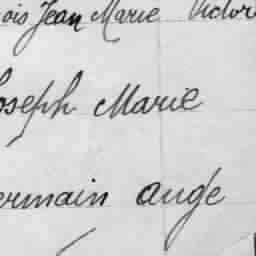 ois Jean Marie Victor
oseph Marie
ermain ange